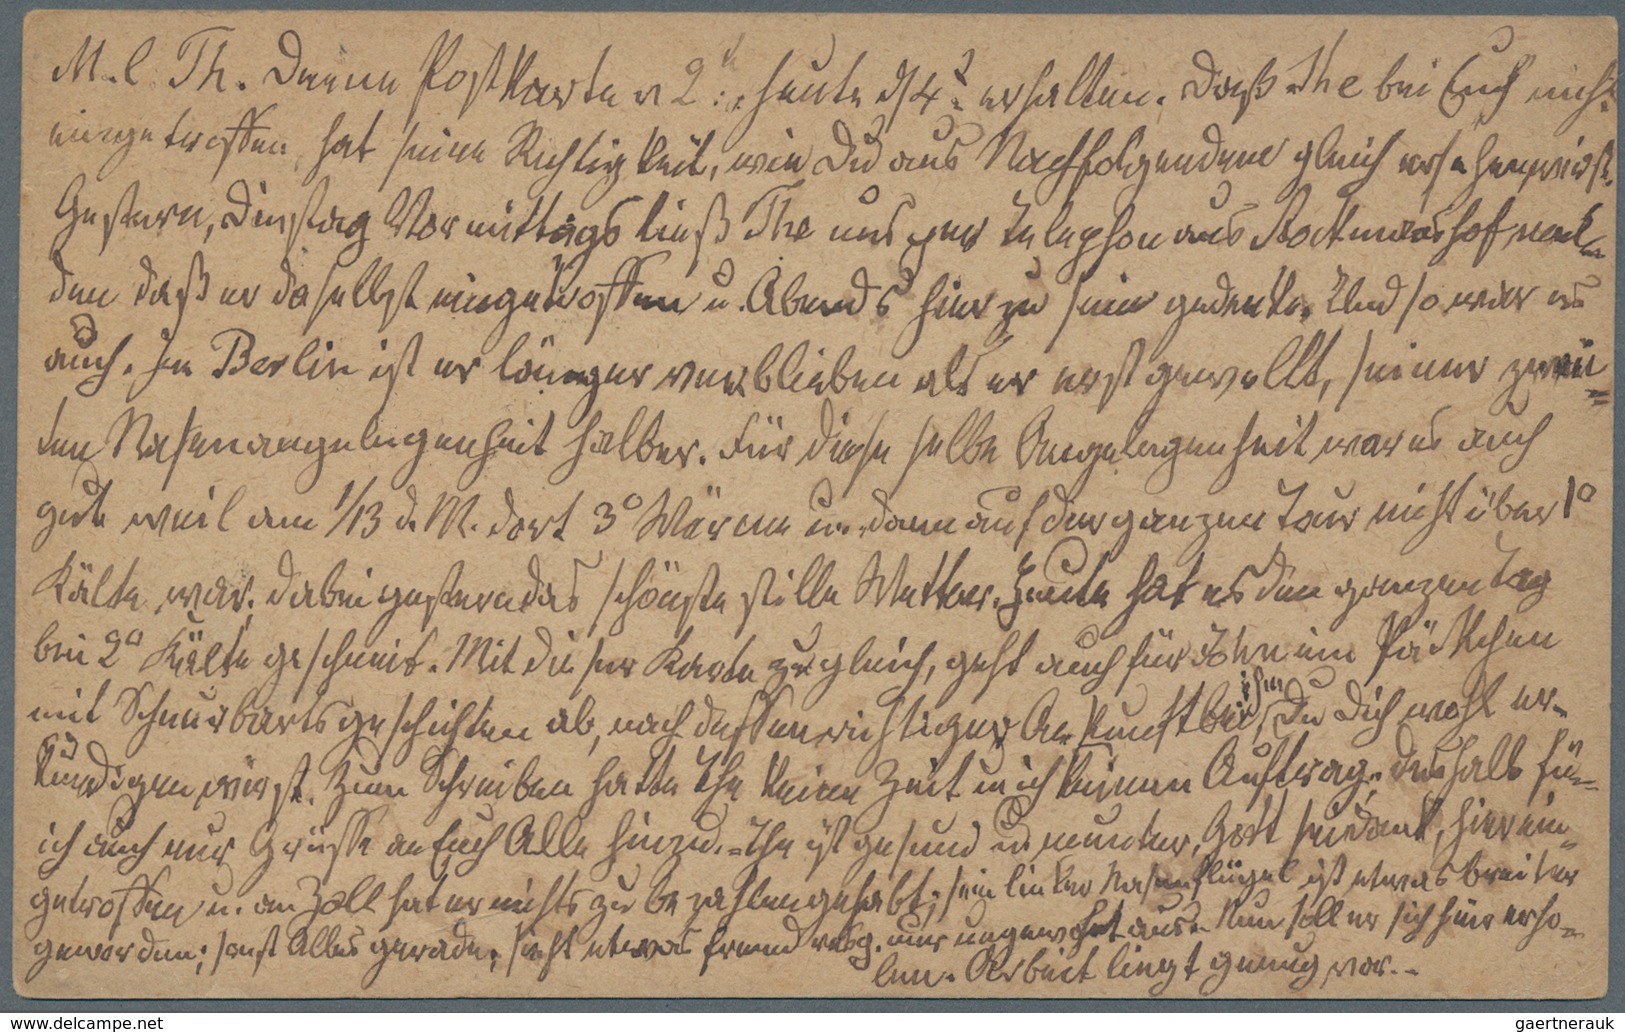 M. l. Th. Deine Postkarte v 2ⁿ: heute d/4ⁿ erhalten. Daß The bei Euch nicht
eingetroffen, hat seine Richtigkeit, wie Du aus Nachfolgendem gleich ersehen wirst.
Gestern, Dienstag Vormittags ließ The uns per Telephon aus Rottmannshof mel-
den daß er daselbst eingetroffen u. Abends hier zu sein gedenke. Und so war es
auch. In Berlin ist er länger verblieben als er erst gewollt, seiner zwei-
ten Nasenangelegenheit halber. Für diese selbe Angelegenheit war es auch
gut weil am 1/13 d. M. dort 3° Wärme u. dann auf der ganzen Tour nicht über 1°
Kälte war, dabei gestern das schönste stille Wetter. Heute hat es den ganzen Tag
bei 2° Kälte geschneit. Mit dieser Karte zugleich, geht auch für John ein Päckchen
mit Schnurbartsgeschichten ab, nach dessen richtiger Ankunft bei ihm, Du Dich wohl er-
kundigen wirst. Zum Schreiben hatte The keine Zeit u ich keinen Auftrag, deshalb füge
ich auch nur Grüsse an Euch Alle hinzu. The ist gesund u. munter, Gott sei dank, hier ein-
getroffen u. an Zoll hat er nichts zu bezahlen gehabt; sein linker Nasenflügel ist etwas breiter
geworden; sonst Alles gerade; sieht etwas fremd resp. nur ungewohnt aus. Nun soll er sich hier erho-
len. Arbeit liegt genug vor.
gaertnerauk
www.delcampe.net